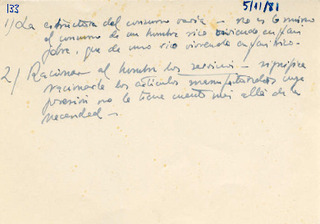 133
5/11/81
1) La estructura del consumo varía – no es lo mismo
el consumo de un hombre rico viviendo en país
pobre, que de uno rico viviendo en país rico.
2) Racionar al hombre los servicios – significa
racionarle los artículos manufacturados cuya
posesión no le tiene cuenta más allá de la
necesidad –